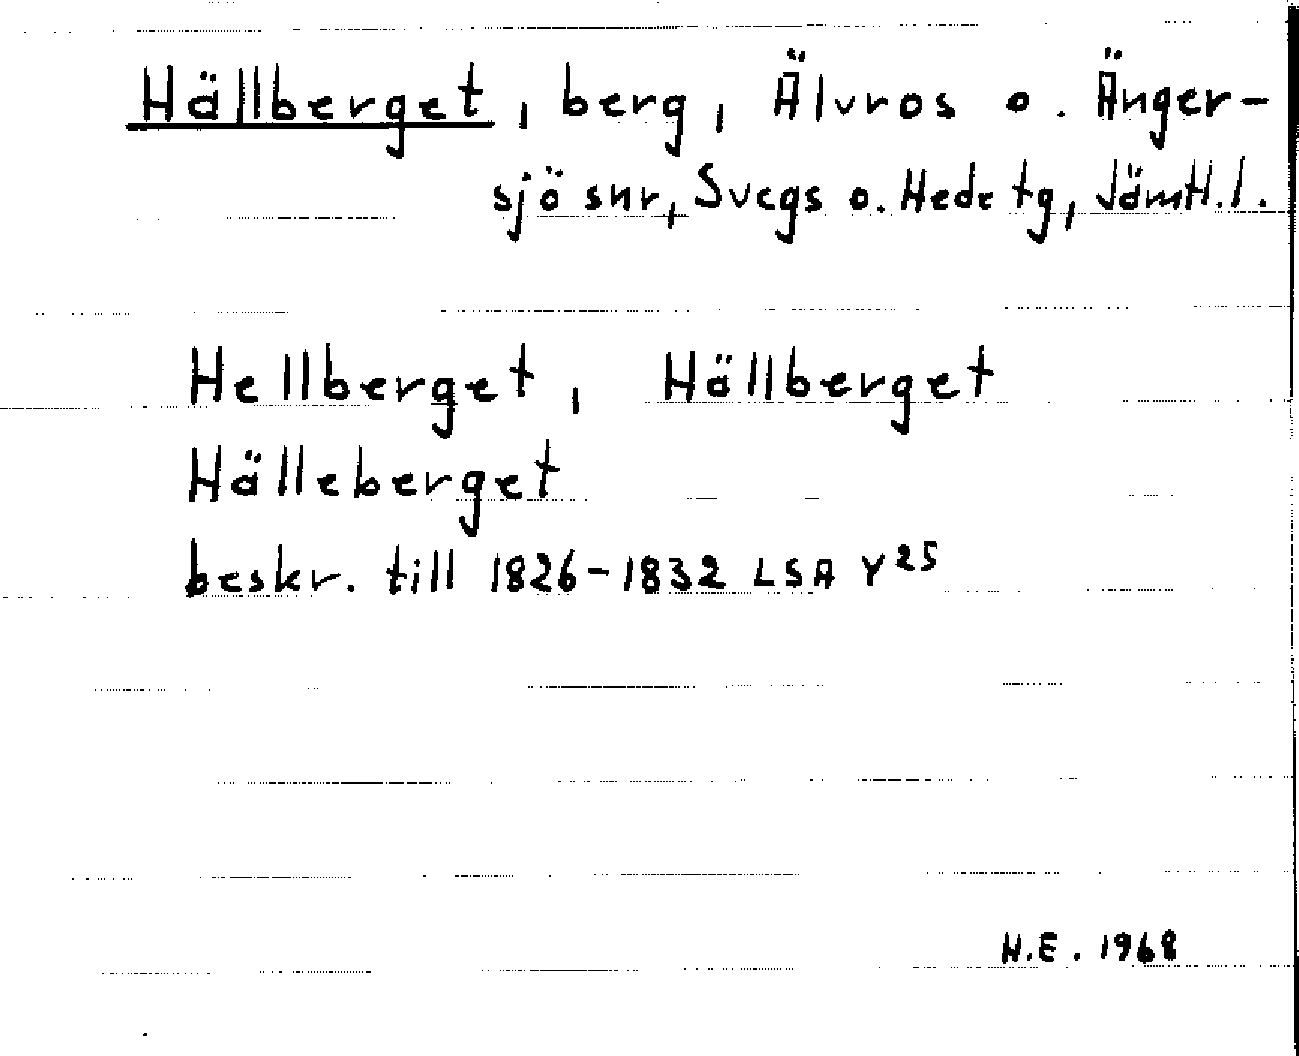 Hällberget, berg, Älvros o. Änger-
sjö snr, Svegs o. Hede tg, Jämtl. l.
Hellberget, Hällberget
Hälleberget
beskr. till 1826-1832 LSA Y25
N.E. 1968